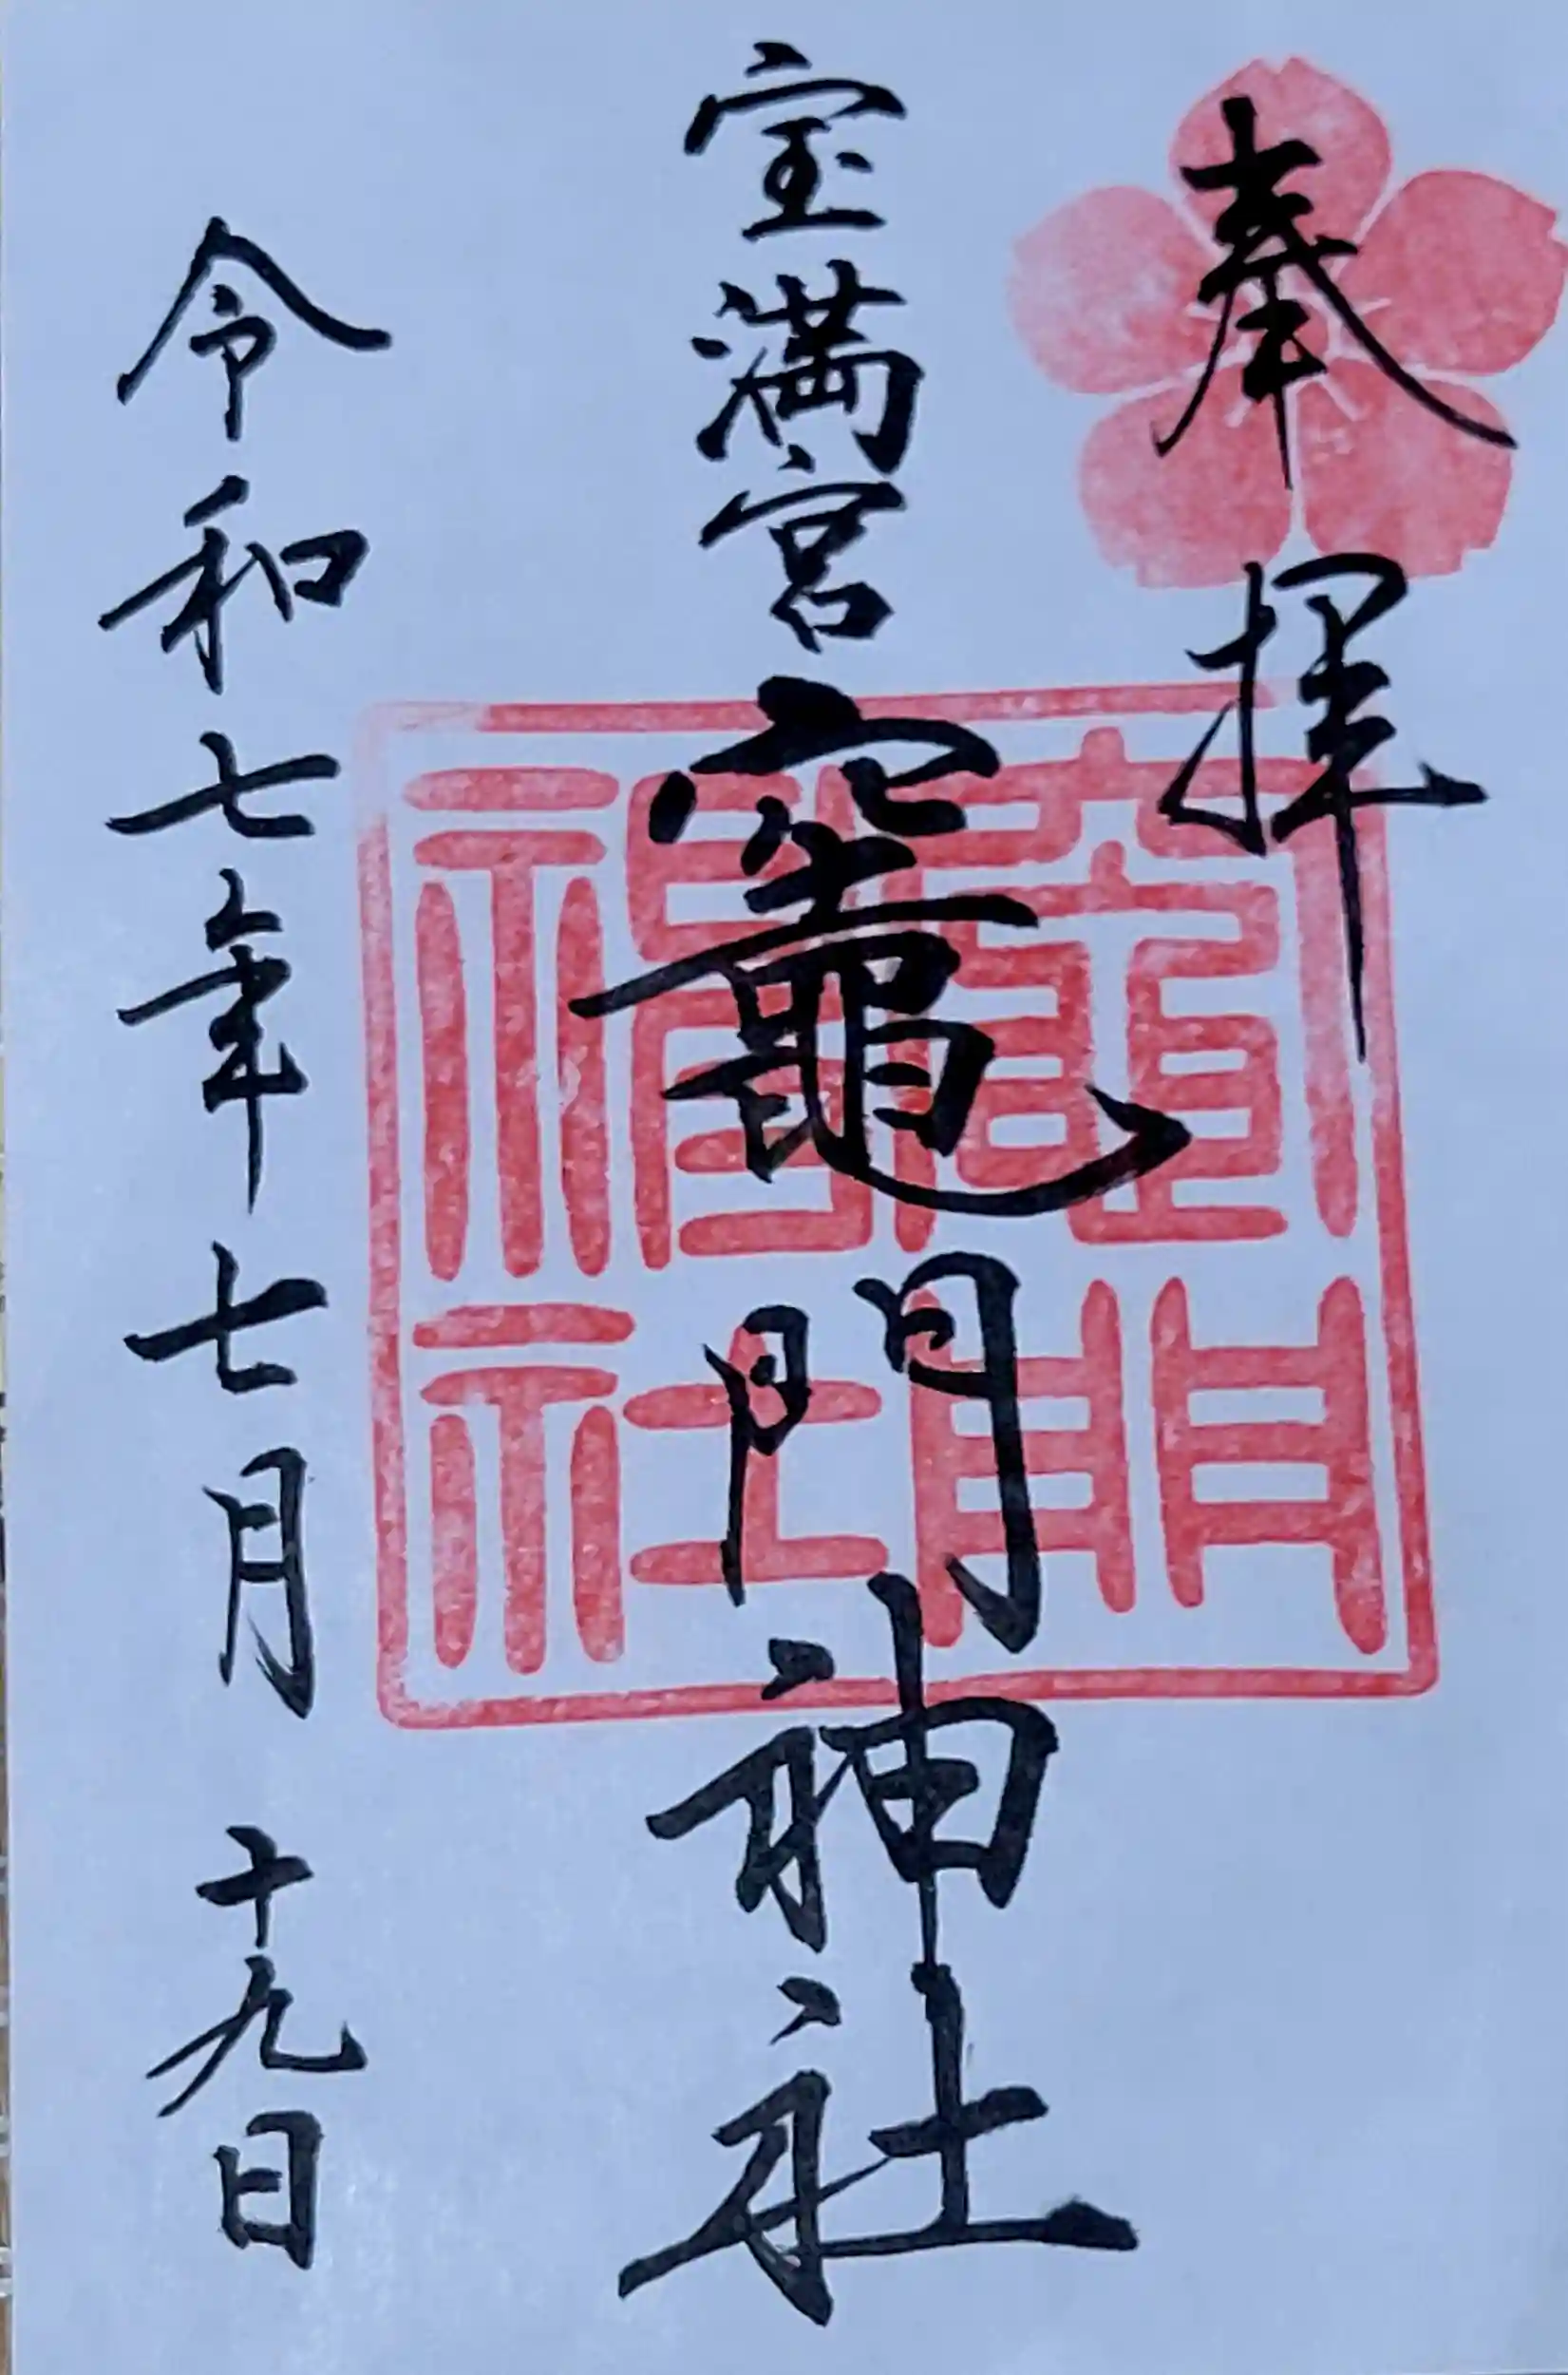 奉拝
宝満宮竈門神社
令和七年七月十九日
竈門
神社